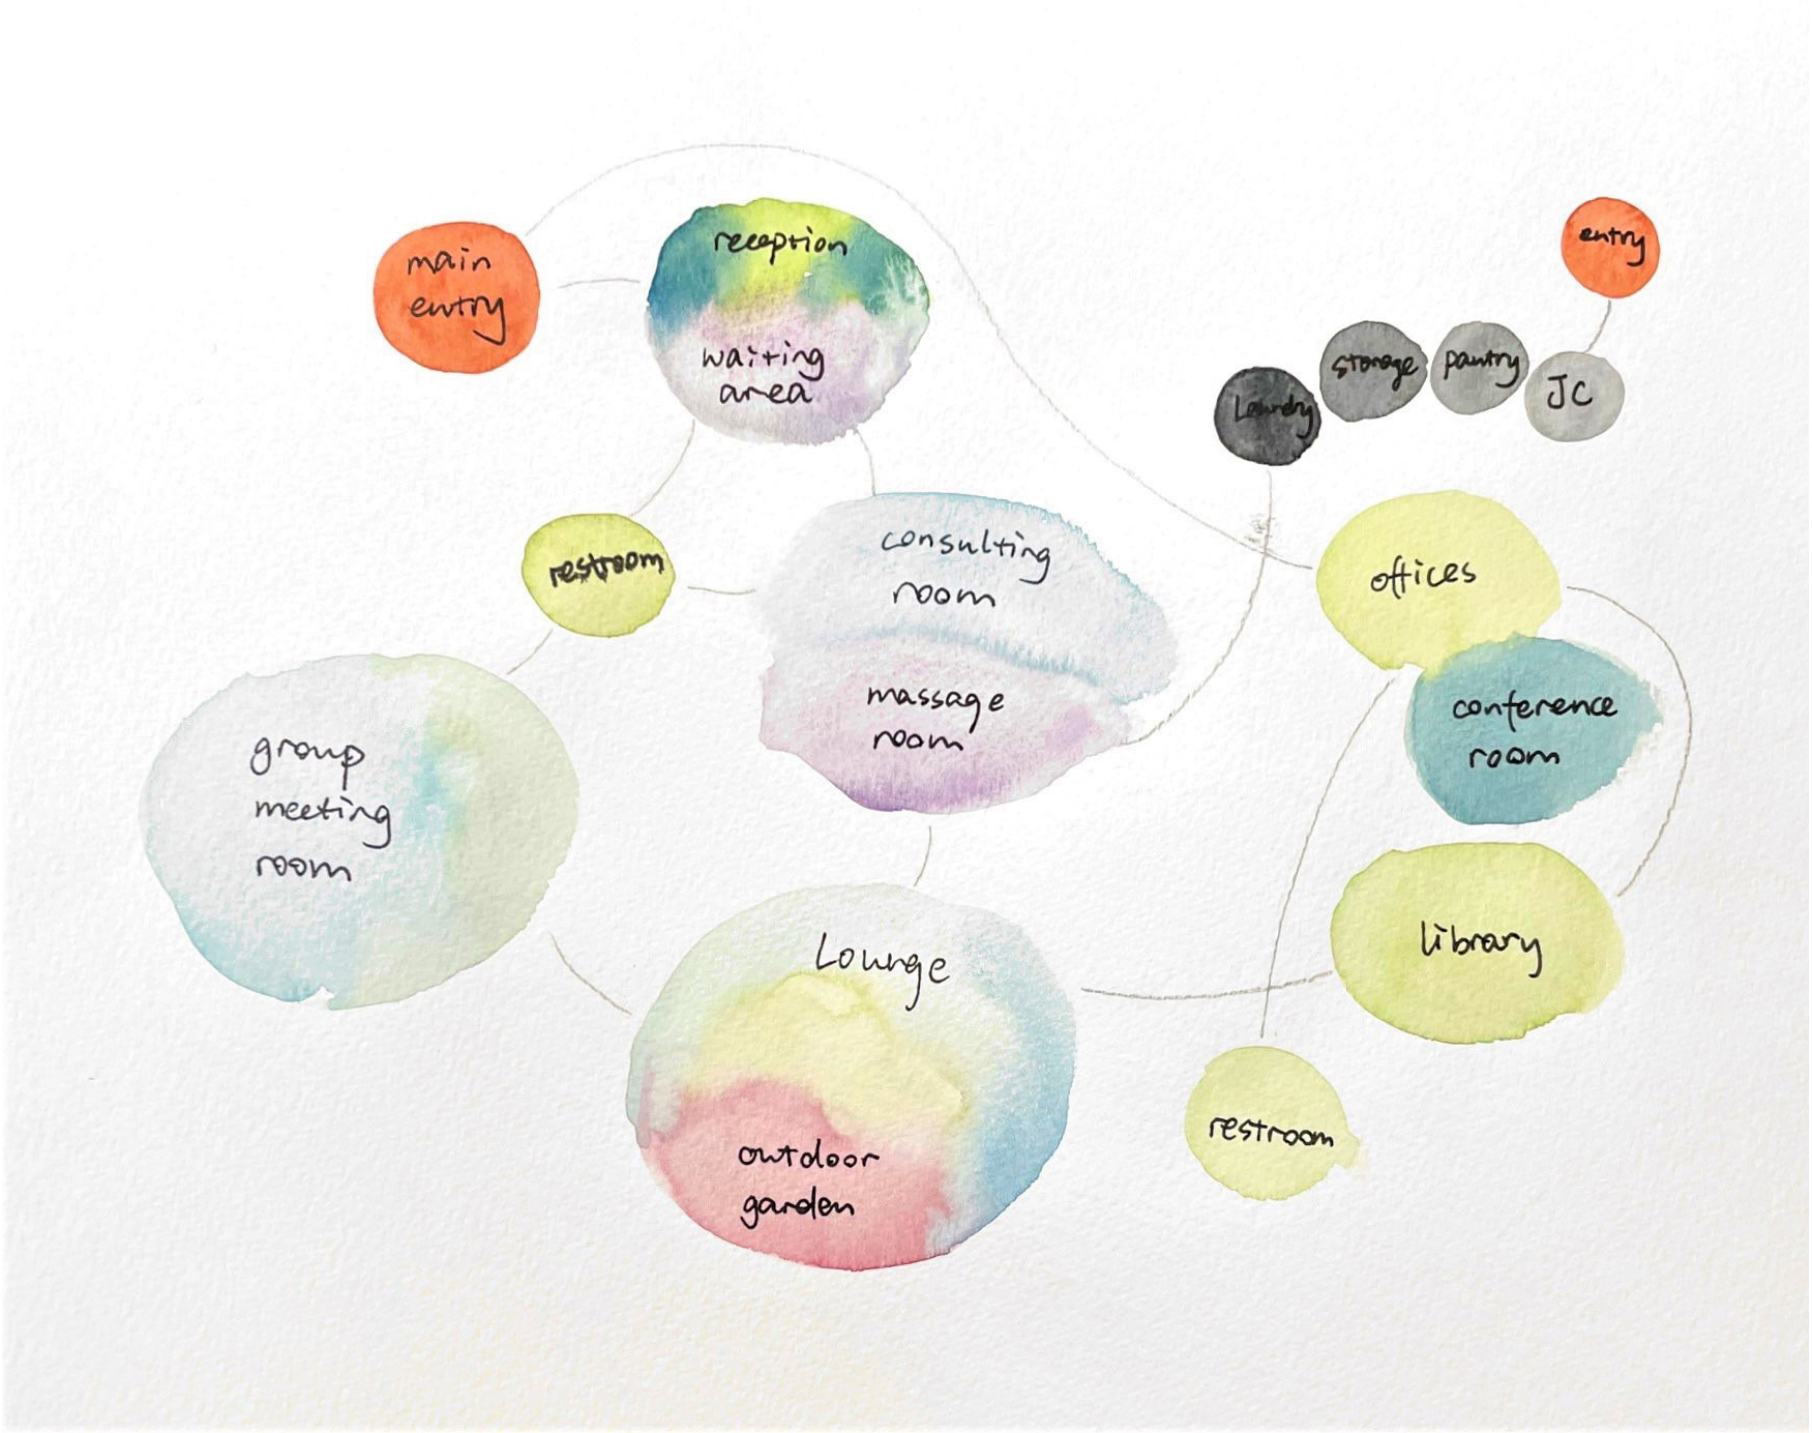 main
entry
reception
waiting
area
entry
Laundry
storage
pantry
JC
restroom
consulting
room
massage
room
offices
conference
room
group
meeting
room
Lounge
outdoor
garden
library
restroom